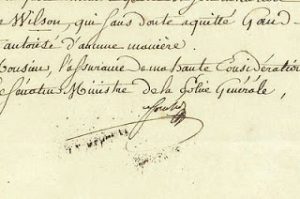 Wilson, qui sans doute aquitté Gand
autorisé d'aucune manière.
Cousin, l'assurance de ma haute Considération
Le Sénateur Ministre de la Police Générale,
Fouché